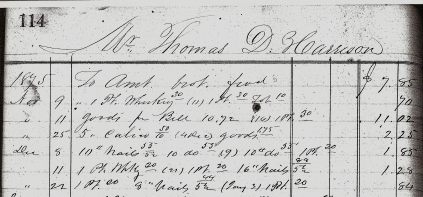 114
Mr Thomas D. Harrison
1875 To Amt. brot. forwd $ 7.85
Nov 9 " 1 Pt. Whiskey 30 (11) 1 Pt. 30 10 70
" 11 " goods per Bill 10.72 (16) Pt 30 11.02
" 25 5 " Calico 50 (4 Dec) goods 175 2.25
Dec 8 10 " Nails 10 do (9) 10 " do 1 Pt. 20 1.85
11 1 Pt. Whky 20 (21) 1 Pt. 20 16 " Nails 1.28
" 22 1 Pt. do 8 " Nails 1 Pt 84